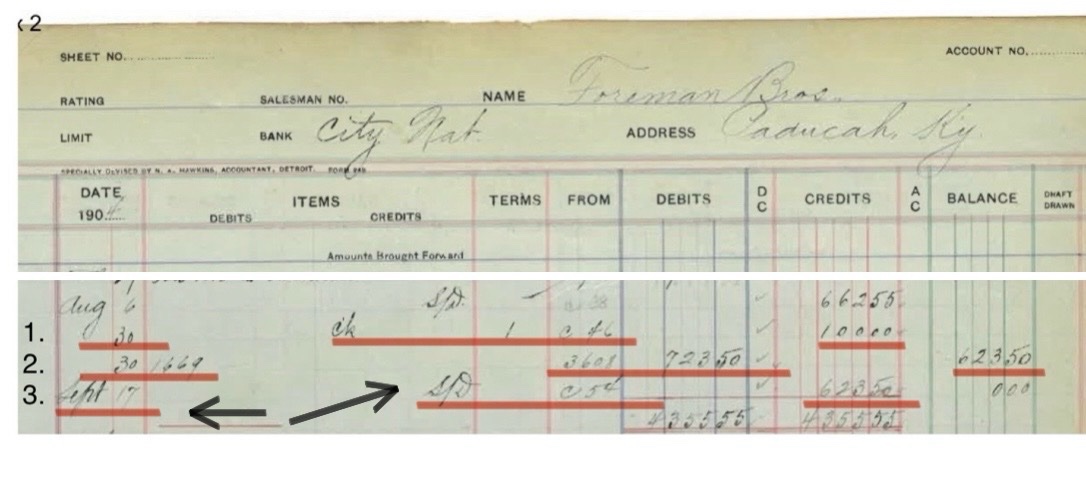 ‹ 2
SHEET NO. ACCOUNT NO.
RATING SALESMAN NO. NAME Foreman Bros.
LIMIT BANK City Nat. ADDRESS Paducah, Ky.
SPECIALLY DEVISED BY N. A. HAWKINS, ACCOUNTANT, DETROIT. FORM
DATE 1904 ITEMS DEBITS CREDITS TERMS FROM DEBITS D C CREDITS A C BALANCE DRAFT DRAWN
Amounts Brought Forward
Aug 6 S/D. 66255
1. 30 ck 1 C 46 10000
2. 30 1669 3608 72350 62350
3. Sept 17 S/D C 54 62350 000
435555 435555